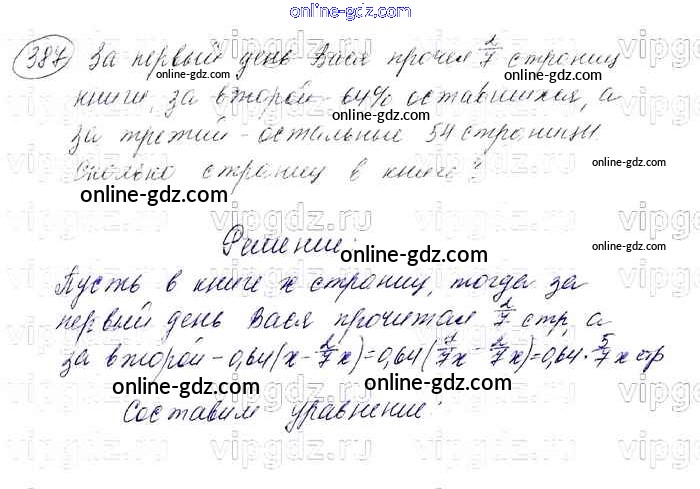 online-gdz.com
387 За первый день Вася прочел 2/7 страниц
online-gdz.com online-gdz.com
книги, за второй - 64% оставшихся, а
online-gdz.com
за третий - остальные 54 страницы.
online-gdz.com
Сколько страниц в книге?
online-gdz.com
Решение:
online-gdz.com online-gdz.com
Пусть в книге x страниц, тогда за
первый день Вася прочитал 2/7 стр, а
online-gdz.com
за второй - 0,64(x - 2/7x) = 0,64(7/7x - 2/7x) = 0,64 · 5/7 x стр
online-gdz.com online-gdz.com
Составим уравнение:
online-gdz.com
vipgdz.ru